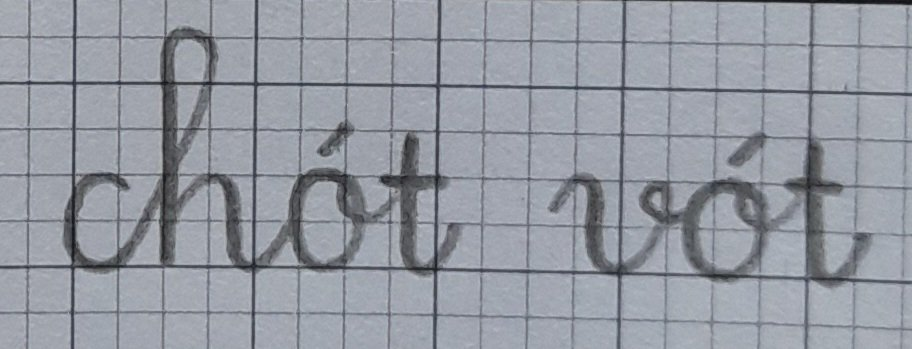 chót vót